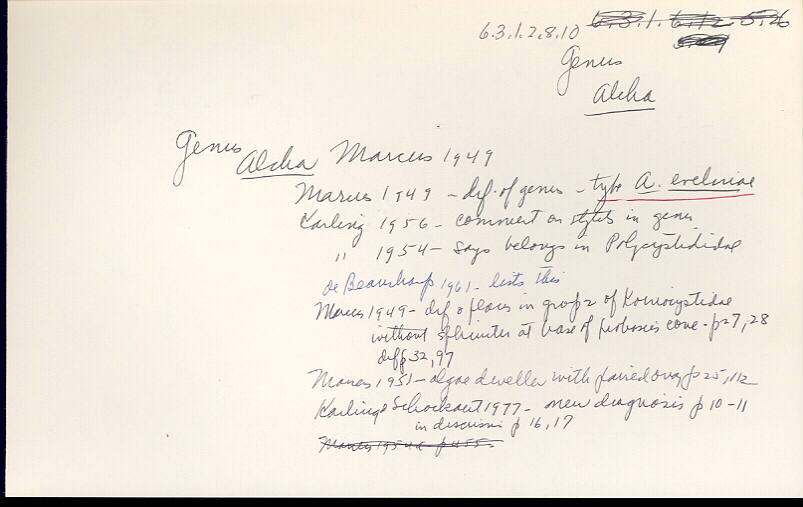 6.3.1.2.8.10 6.3.1. 6.12 5.26
Genus
Alcha
Genus Alcha Marcus 1949
Marcus 1949 – dif. of genus – type A. evelinae
Karling 1956 – comment on stylets in genus
" 1954 – says belongs in Polycystididae
de Beauchamp 1961 – lists this
Marcus 1949 – dif & places in group 2 of Koinocystidae
without sphincter at base of proboscis cone – p 27, 28
diff 32, 97
Marcus 1951 – algae dweller with paired ovary p 25, 112
Karling & Schockaert 1977 – new diagnosis p 10–11
in discussion p 16, 17
Marcus 1954a – p 455